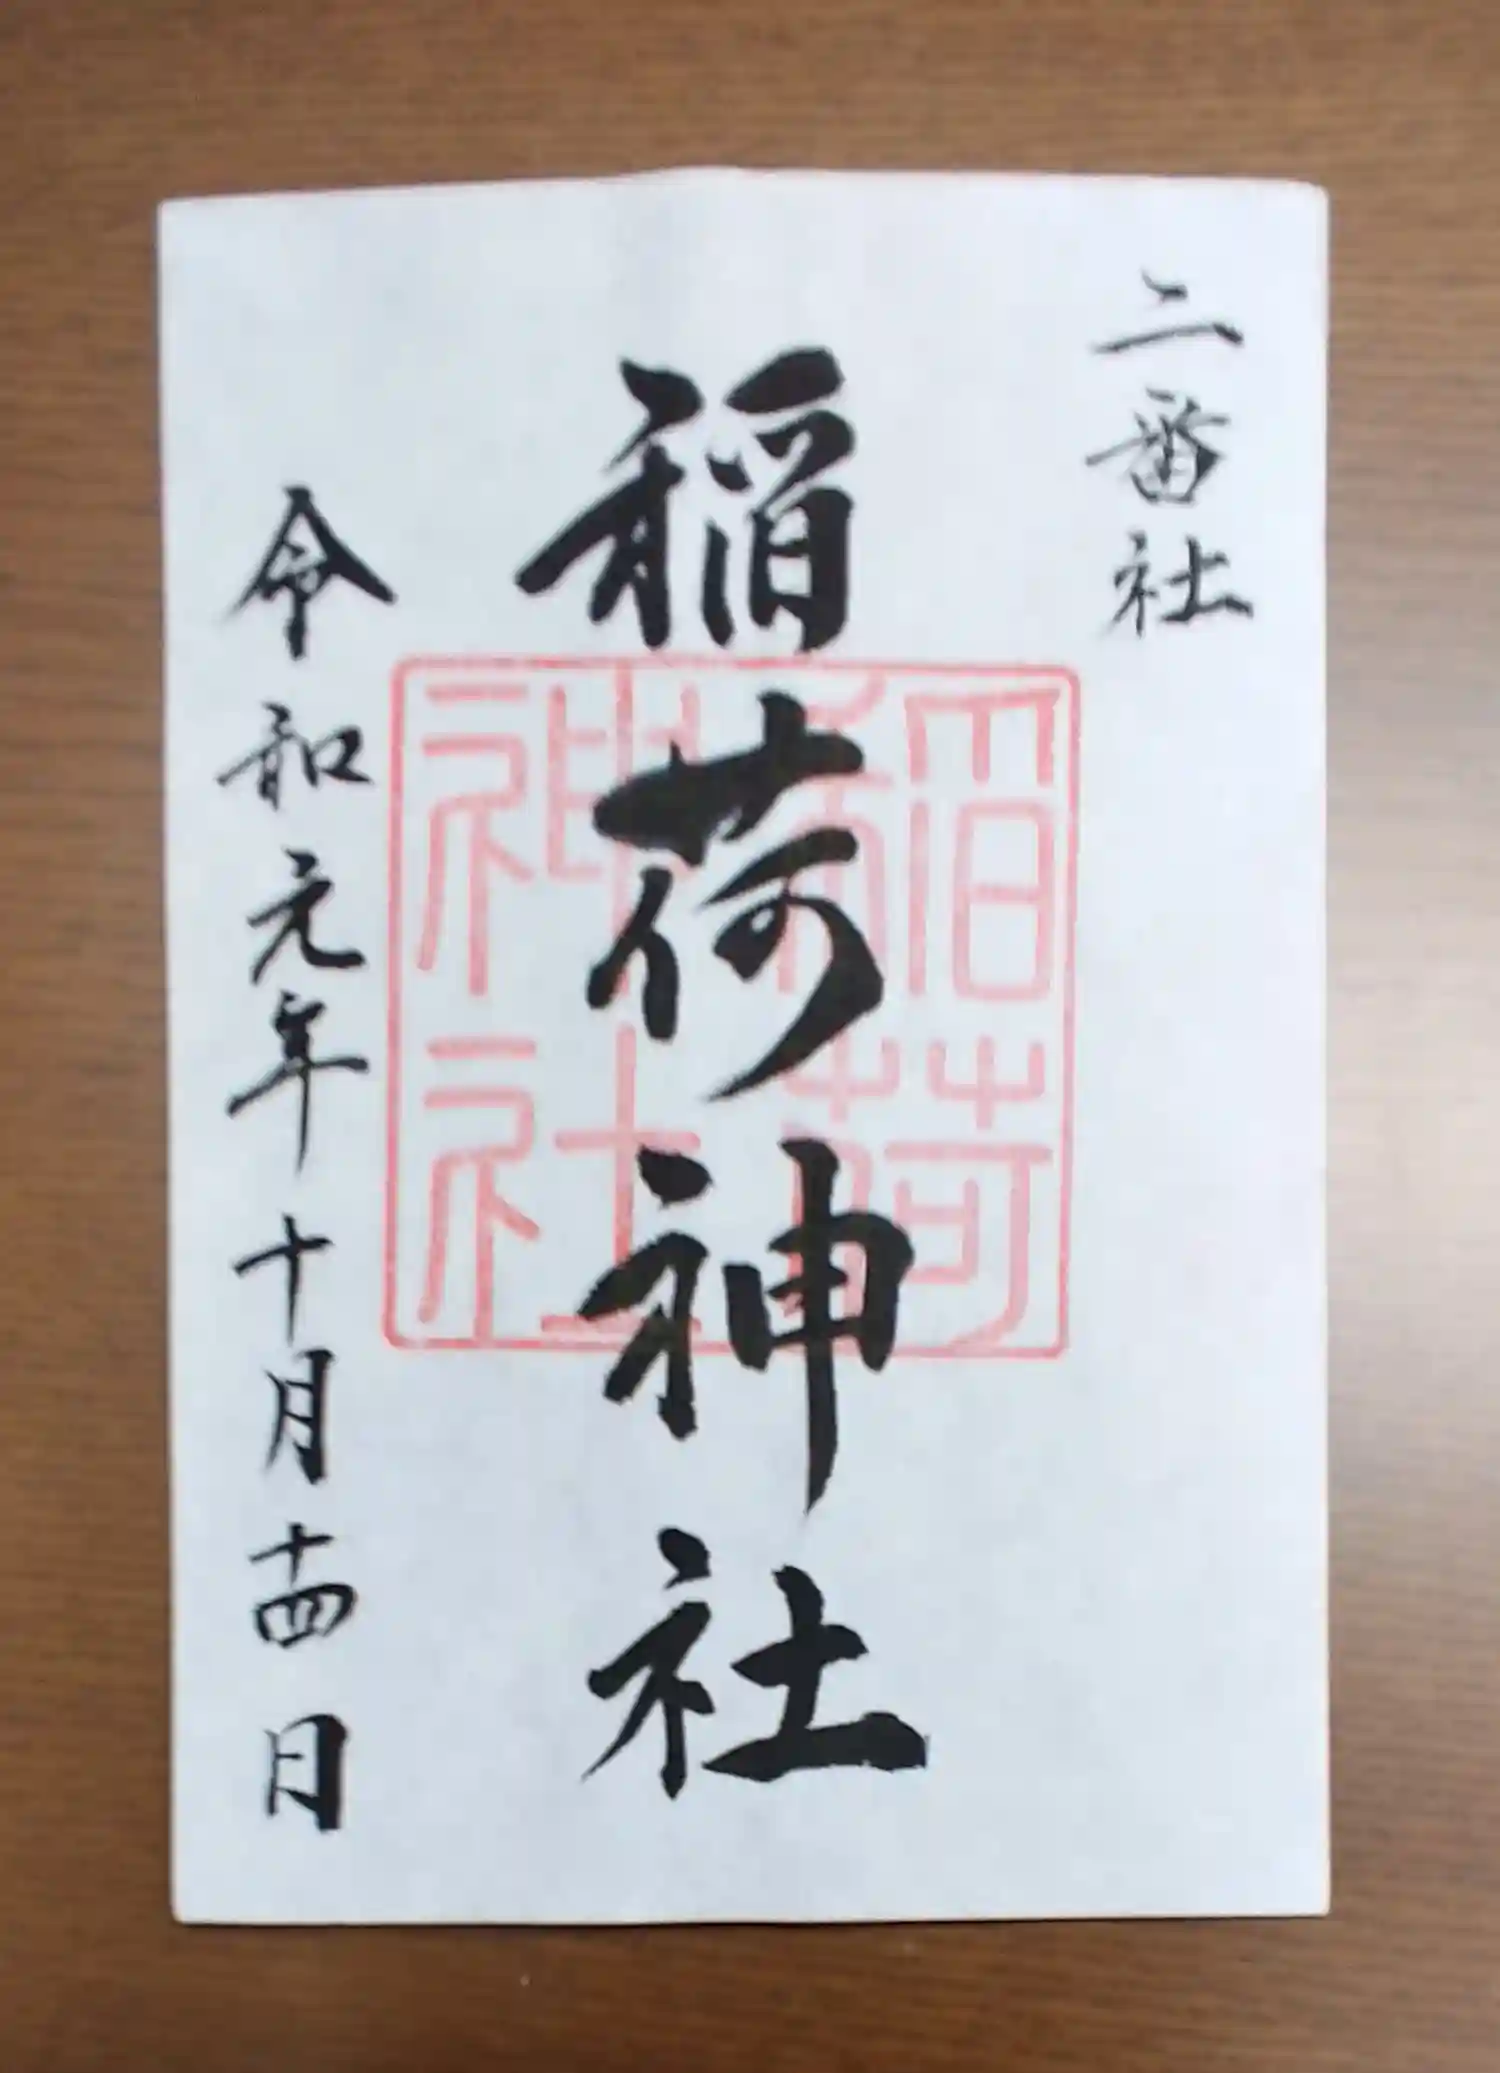 二番社
稲荷神社
稲荷
神社
令和元年十月十四日